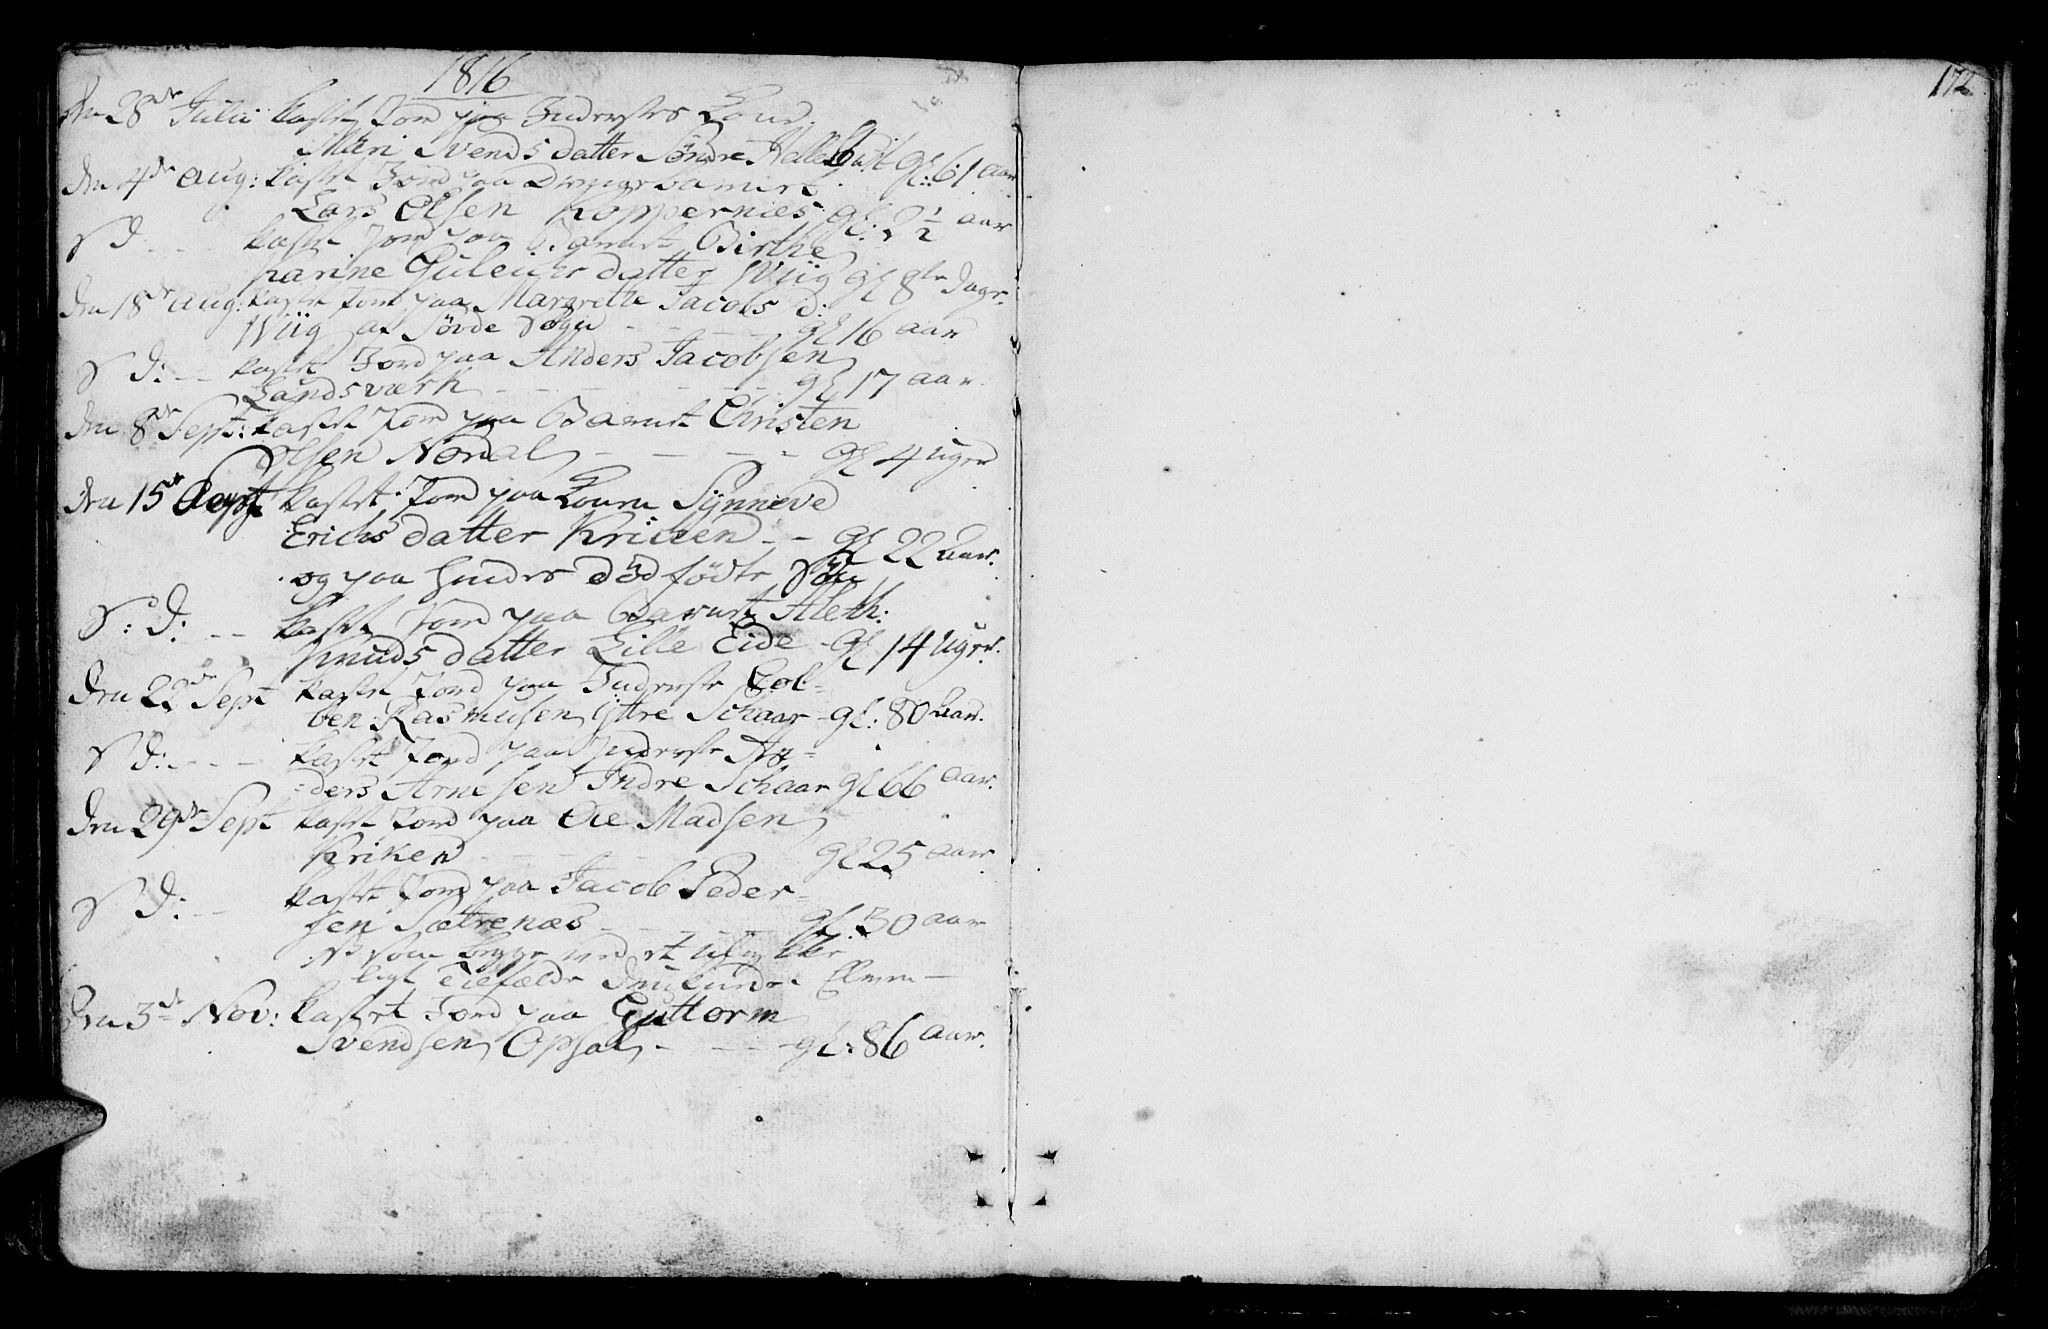 1816
172
Den 28de Julii kastet Jord paa Inderstes Kone
Mari Svends datter Søndre Hellebust gl: 61 aar
Den 4de Aug: kastet Jord paa Drengebarnet
Lars Olsen Koppernæs gl: 2 1/2 aar
S D - - kastet Jord paa Barnet Birthe
Karine datter Wiig gl 8te Dage.
Den 18de Aug: kastet Jord paa Margrethe Jacobs d:
Wiig af Søvde Sogn - - - gl 16 aar
S D: - - kastet Jord paa Anders Jacobsen
Landsværk - - - - - gl 17 aar.
Den 8de Sept: kastet Jord paa Barnet Christen
Olsen Nordal - - - - gl 4 Uger
Den 15de Sept kastet Jord paa Konen Synneve
Erichs datter Kriken - - gl 22 Aar.
og paa hendes dødfødte Søn
S: D: - - kastet Jord paa Barnet Aleth:
Knuds datter Lille Eide - gl 14 Uger.
Den 22de Sept kastet Jord paa Inderste Col=
ben Rasmusen Yttre Schaar - gl: 80 Aar.
S D: - - - kastet Jord paa Inderste An=
=ders Arnesen Indre Schaar gl 66 aar.
Den 29de Sept kastet Jord paa Ole Madsen
Kriken - - - - gl 25 aar
S D: - - kastet Jord paa Jacob Peder=
sen Sætrenæs - - - - gl. 30 aar
NB som begge ved et ulykke
ligt Tilfælde
Den 3de Nov: kastet Jord paa Guttorm
Svendsen Opsal - - - gl: 86 aar.